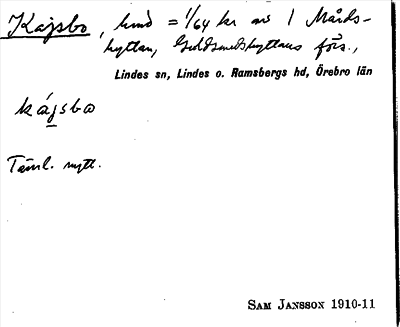 Kajsbo, hmd = 1/64 kr av 1 Mårds-
hyttan, Guldsmedshyttans förs.,
Lindes sn, Lindes o. Ramsbergs hd, Örebro län
kájsbo
Täml. nytt.
SAM JANSSON 1910-11